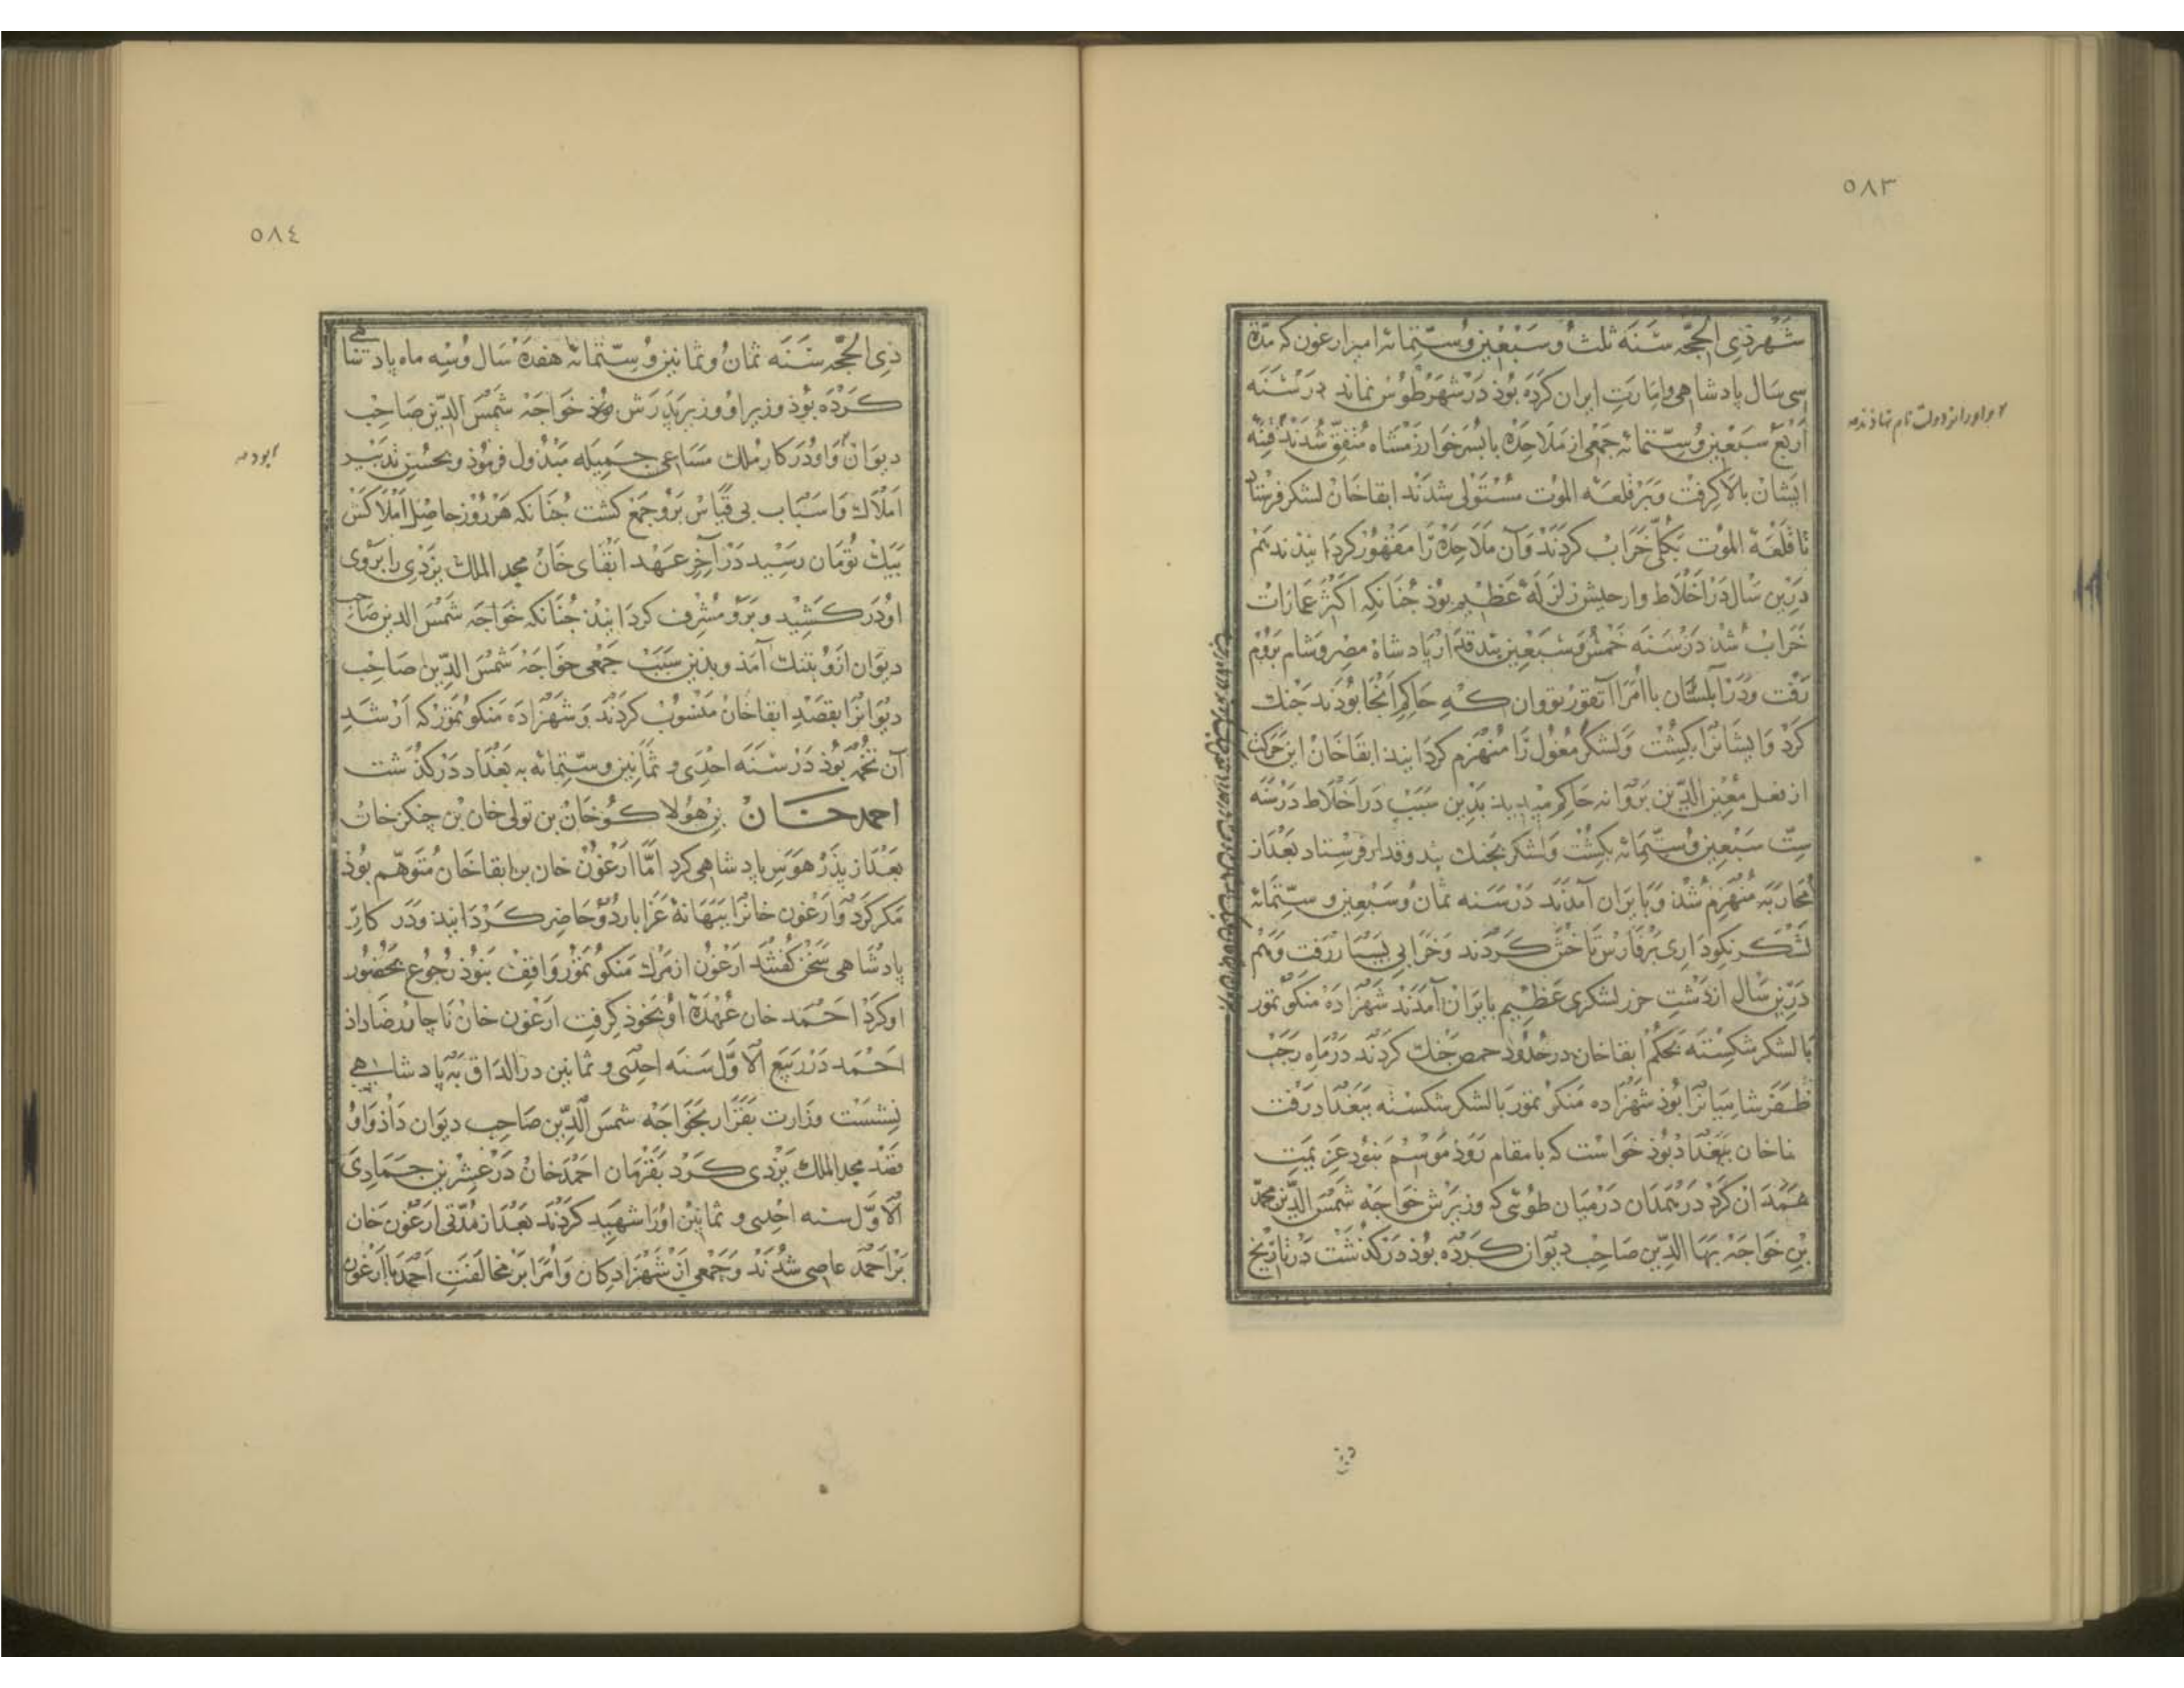 ٥٨٣
شهر ذی الحجّه سنه ثلث و سبعین و ستّمائه امیر ارغون که مدّة
سی سال پادشاهی و امارت ایران کرده بوذ در شهر طوس نماند در سنه
اربع سبعین و ستّمائه جمعی از ملاحده با پسر خوارزمشاه متفق شدند فتنهٔ
ایشان بالا کرفت و بر قلعه الموت مستولی شدند ابقاخان لشکر فرستاد
تا قلعهٔ الموت بکلّی خراب کردند و آن ملاحده را مقهور کردانیذند هم
درین سال در اخلاط و ارجیش زلزلهٔ عظیم بوذ جنانکه اکثر عمارات
خراب شذ در سنه خمس و سبعین بندقدار پادشاه مصر و شام بروم
رفت و در ابلستان با امرا توقو و تودان که حاکم انجا بوذند جنك
کرد و ایشانرا بکشت و لشکر مغول را منهزم کردانید ابقاخان این حرکت
از فعل معین الدّین بروانه حاکم میدید بذین سبب در اخلاط در سنه
ستّ سبعین و ستّمائه بکشت و لشکر بجنك بندوقدار فرستاد بعد از
محاربه منهزم شذ و بایران آمدند در سنه ثمان و سبعین و ستّمائه
لشکر نکوداری بر فارس تاختن کردند و خرابی بسیار رفت و هم
درین سال از دشت خزر لشکری عظیم بایران آمدند شهزاده منکو تمور
با لشکر شکسته بحکم ابقاخان در حدود حمص جنك کردند در ماه رجب
ظفر شامیانرا بوذ شهزاده منکو تمور با لشکر شکسته ببغداد رفت
خاخان ببغداد بوذ خواست که بامقام روذ موسم بنوذ عزیمت
همدان کرد در همدان در میان طوئی که وزیرش خواجه شمس الدّین محمّد
بن خواجه بها الدّین صاحب دیوان کرده بوذ درکذشت در تاریخ
٥٨٤
ذی الحجّه سنه ثمان و ثمانین و ستّمائه هفده سال و سه ماه پادشاهی
کرده بوذ وزیر او وزیر پدرش بوذ خواجه شمس الدّین صاحب
دیوان و او در کار ملك مساعی جمیله مبذول فرموذ و بحسن تدبیر
املاك و اسباب بی قیاس برو جمع کشت جنانکه هر روز حاصل املاکش
بیك تومان رسید در آخر عهد ابقای خان مجد الملك یزدی را بروی
او در کشید و برو مشرف کردانیذ جنانکه خواجه شمس الدین صاحب
دیوان ازو بتنك آمذ و بذین سبب جمعی خواجه شمس الدّین صاحب
دیوانرا بقصد ابقاخان منسوب کردند و شهزاده منکو تمور که ارشد
آن تخمه بوذ در سنه احدی و ثمانین و ستّمائه به بغداد درکذشت
احمد خان بن هولاکو خان بن تولی خان بن چنکز خان
بعد از پذر هوس پادشاهی کرد امّا ارغون خان بن ابقاخان متوهّم بوذ
مکر کرد و ارغون خانرا ببهانهٔ عزا باردو حاضر کردانید و در کار
پادشاهی سخن کفتند ارغون از مرك منکو تمور واقف بنوذ رجوع بحضور
او کرد احمد خان عهدهٔ او بخوذ کرفت ارغون خان ناچار رضا داذ
احمد در ربیع الاوّل سنه احدی و ثمانین در الداق به پادشاهی
نشست وزارت بقرار بخواجه شمس الدّین صاحب دیوان داذ و او
قصد مجد الملك یزدی کرد بفرمان احمد خان در عشرین جمادی
الاوّل سنه احدی و ثمانین او را شهید کردند بعد از مدّتی ارغون خان
بر احمد عاصی شدند و جمعی از شهزادکان و امرا بر مخالفت احمد با ارغون